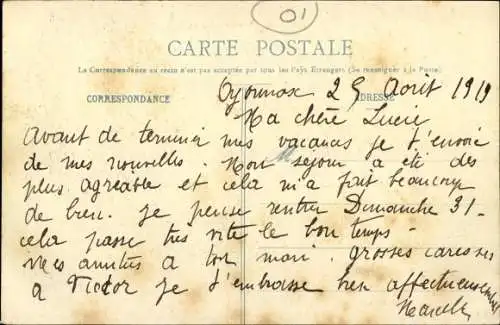 01
CARTE POSTALE
La Correspondance au recto n'est pas acceptée par tous les Pays Étrangers (Se renseigner à la Poste)
CORRESPONDANCE
ADRESSE
Oyonnax 25 Août 1919
Ma chère Lucie
Avant de terminer mes vacances je t'envoie
de mes nouvelles. Mon séjour a été des
plus agréable et cela m'a fait beaucoup
de bien. Je pense rentrer Dimanche 31-
cela passe très vite le bon temps-
Mes amitiés à ton mari. Grosses caresses
à Victor je t'embrasse bien affectueusement
Marcelle